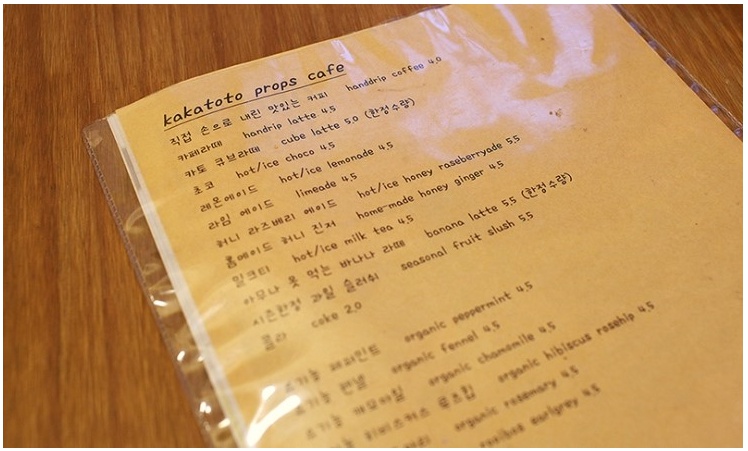 kakatoto props cafe
직접 손으로 내린 맛있는 커피 handdrip coffee 4.0
카페라떼 handrip latte 4.5
카토 큐브라떼 cube latte 5.0 (한정수량)
초코 hot/ice choco 4.5
레몬에이드 hot/ice lemonade 4.5
라임 에이드 limeade 4.5
허니 라즈베리 에이드 hot/ice honey raseberryade 5.5
홈메이드 허니 진저 home-made honey ginger 4.5
밀크티 hot/ice milk tea 4.5
아무나 못 먹는 바나나 라떼 banana latte 5.5 (한정수량)
시즌한정 과일 슬러쉬 seasonal fruit slush 5.5
콜라 coke 2.0
유기농 페퍼민트 organic peppermint 4.5
유기농 펜넬 organic fennel 4.5
유기농 캐모마일 organic chamomile 4.5
유기농 히비스커스 로즈힙 organic hibiscus rosehip 4.5
organic rosemary 4.5
rooibos earlgrey 4.5